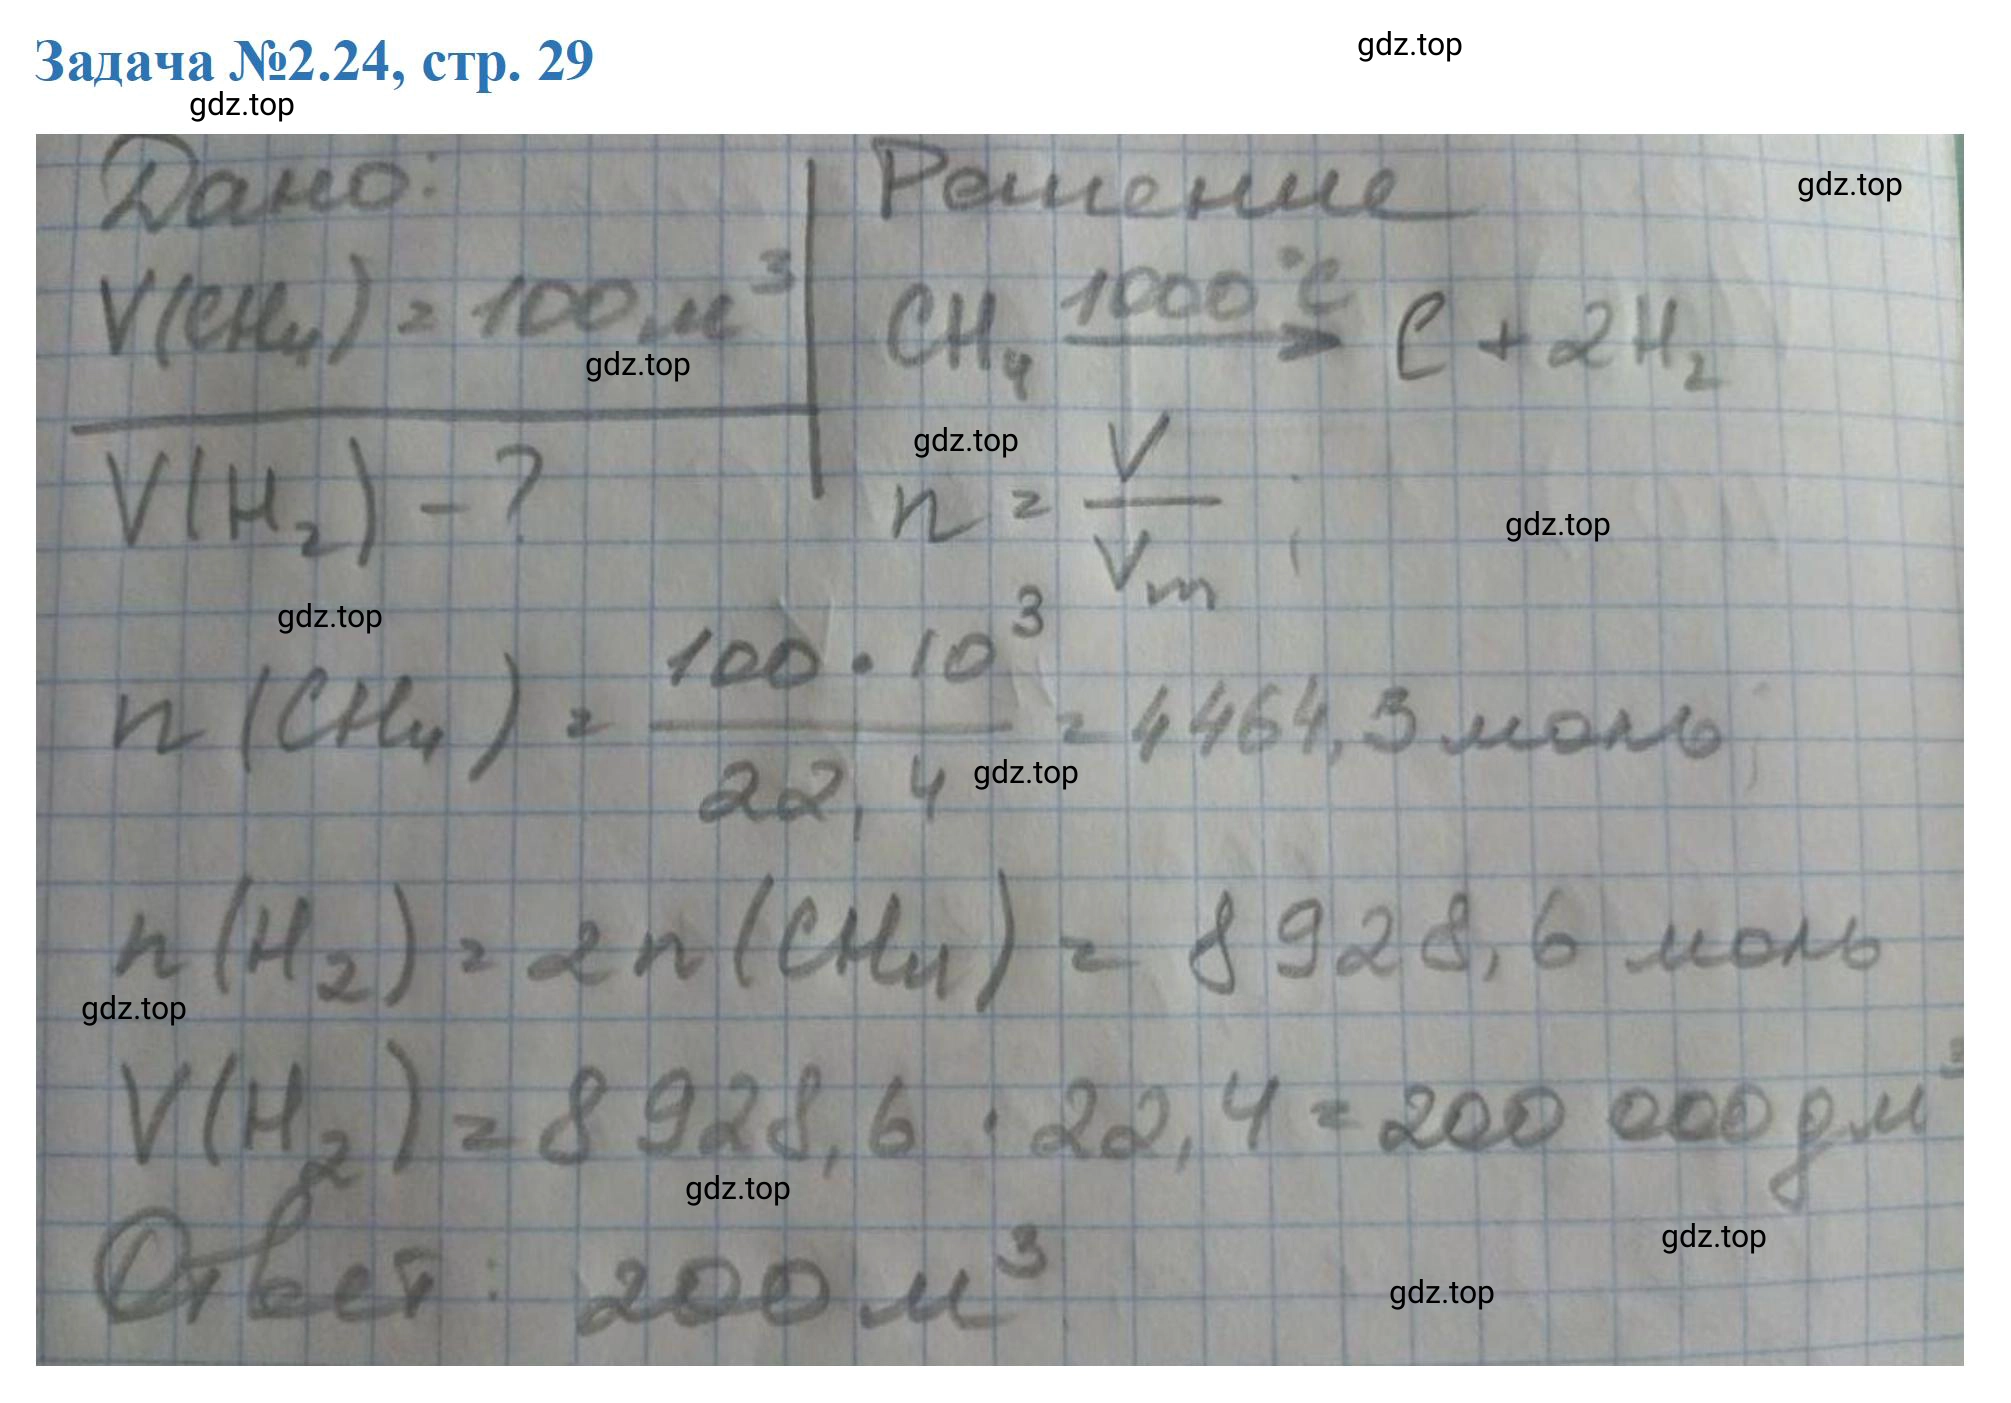 Задача №2.24, стр. 29
gdz.top
gdz.top
Дано:
Решение
gdz.top
V(CH₄) = 100 м³
CH₄ 1000°C → C + 2H₂
gdz.top
gdz.top
V(H₂) - ?
n = V / Vm ;
gdz.top
gdz.top
n(CH₄) = 100 · 10³ / 22,4 = 4464,3 моль;
gdz.top
n(H₂) = 2n(CH₄) = 8928,6 моль
gdz.top
V(H₂) = 8928,6 · 22,4 = 200 000 дм³
gdz.top
gdz.top
Ответ: 200 м³
gdz.top